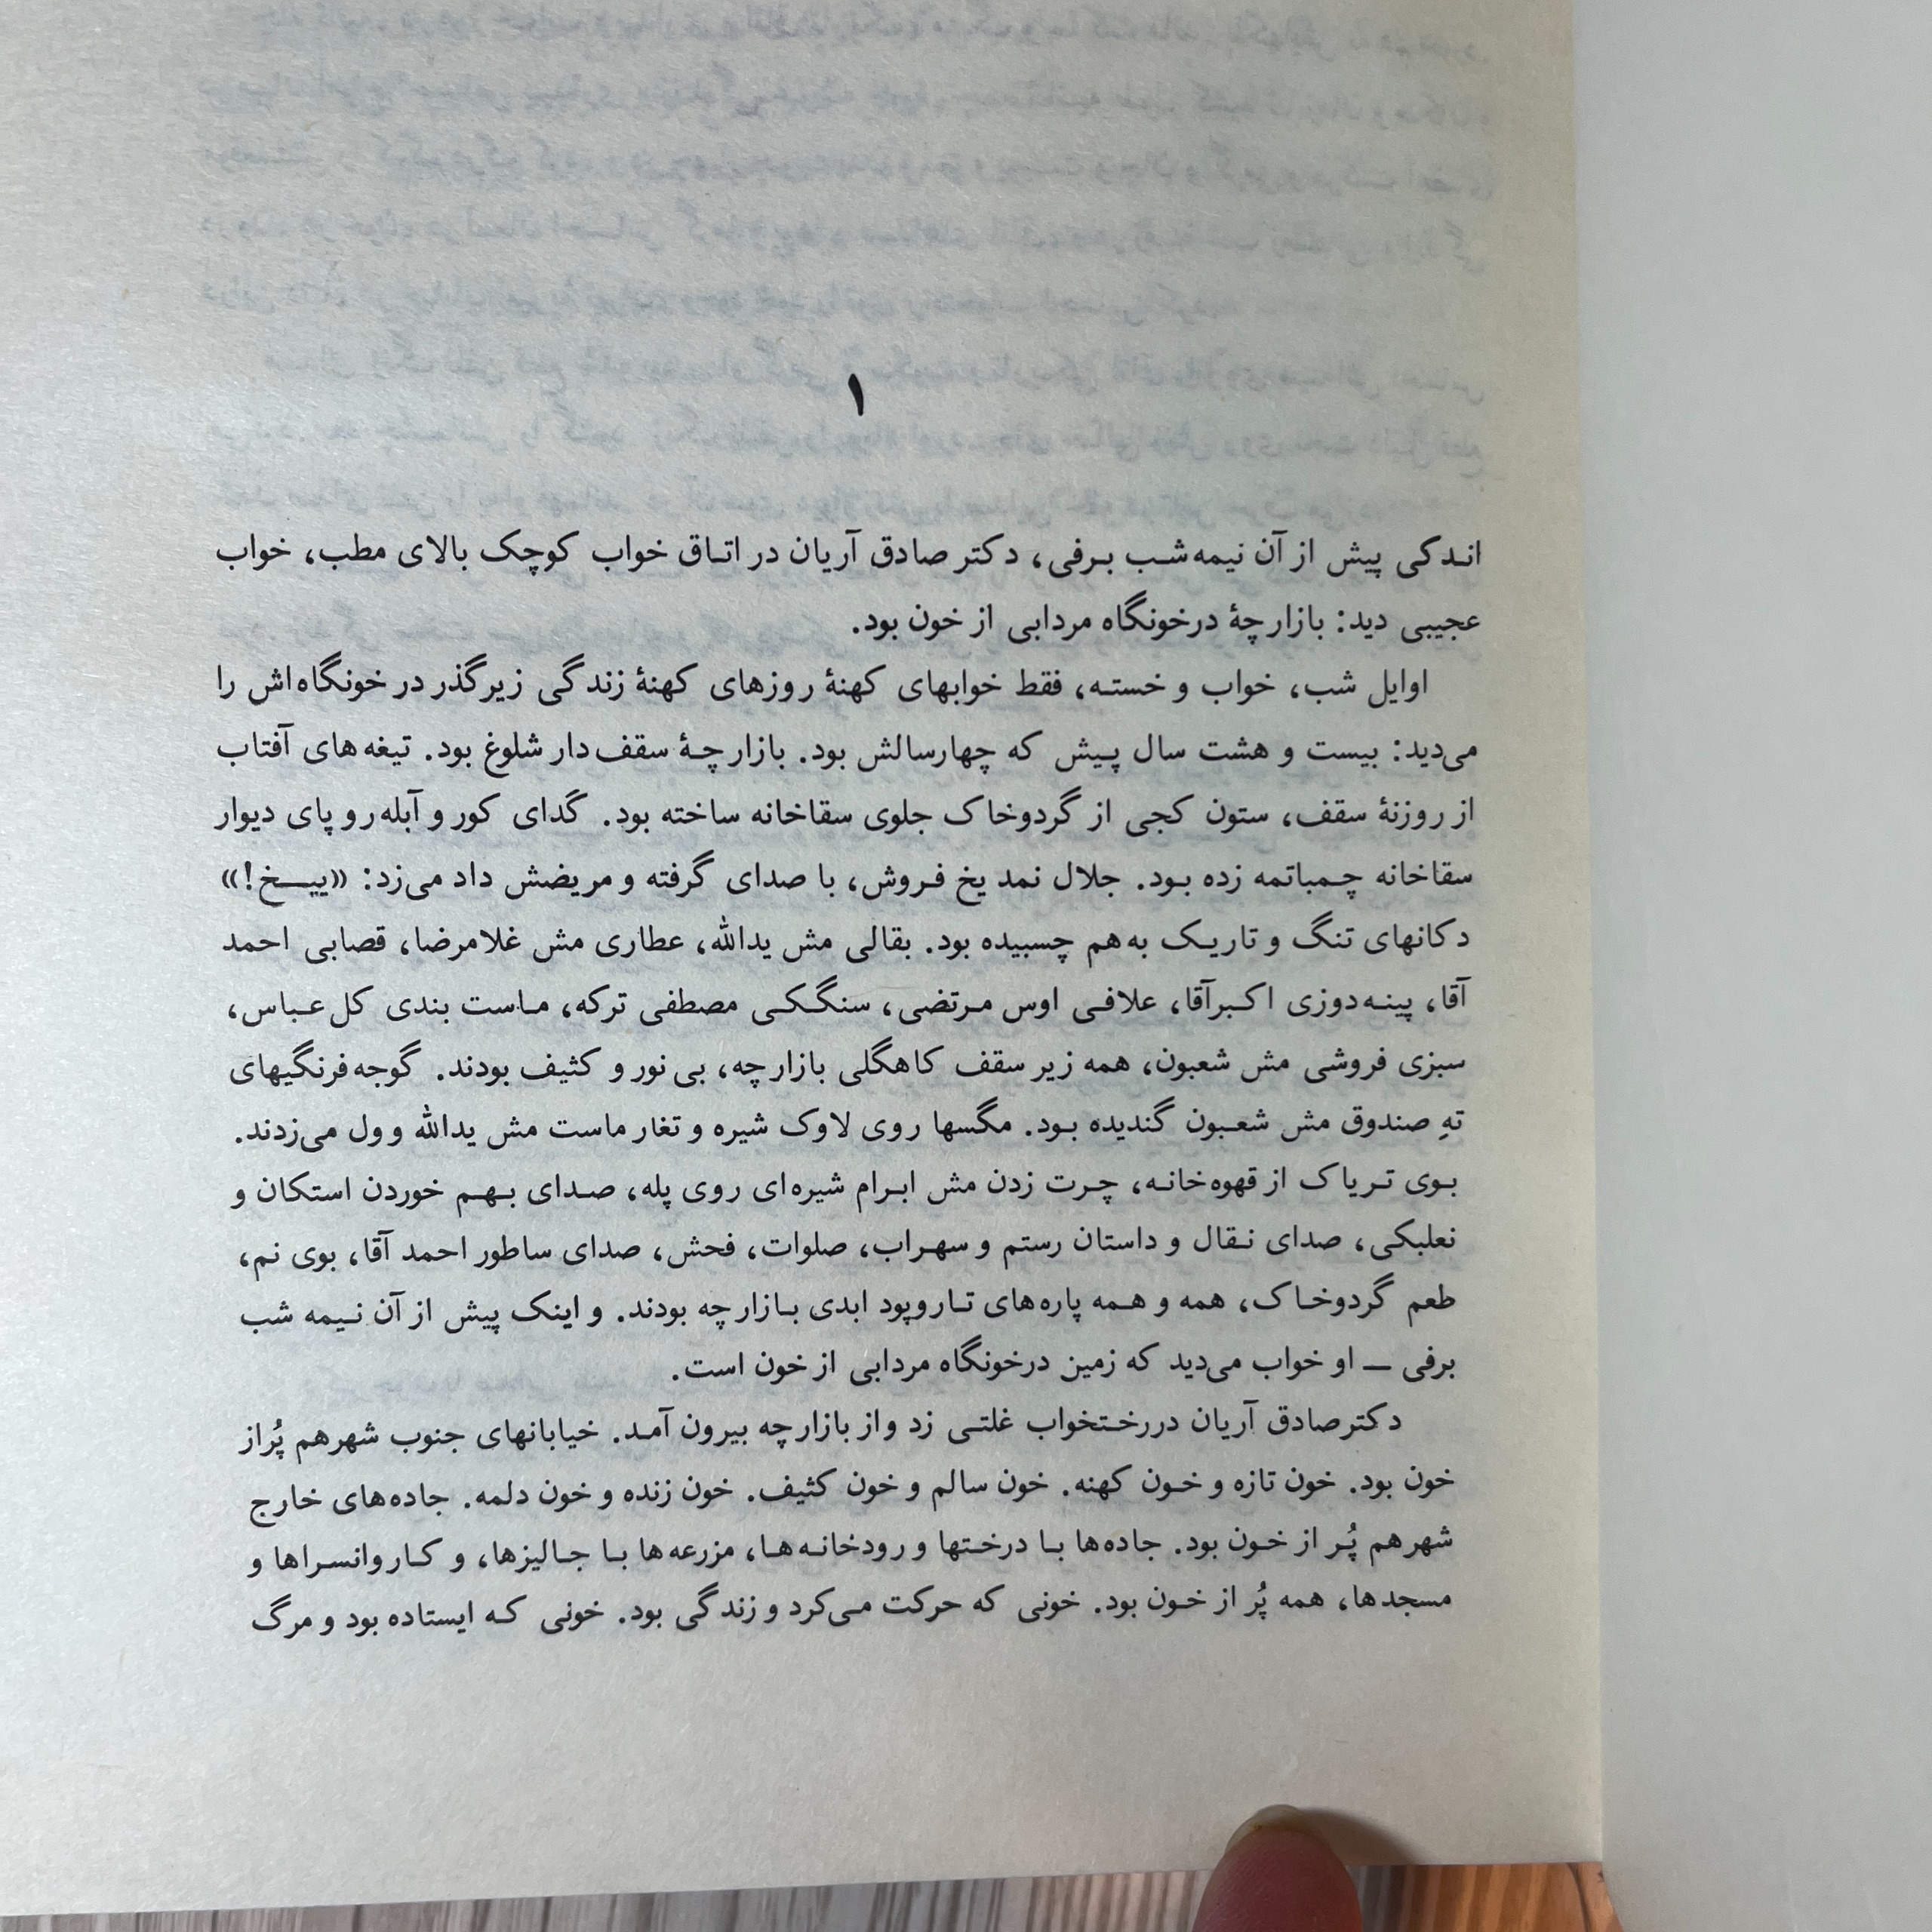 ۱
اندکی پیش از آن نیمه‌شب برفی، دکتر صادق آریان در اتاق خواب کوچک بالای مطب، خواب
عجیبی دید: بازارچهٔ درخونگاه مردابی از خون بود.
اوایل شب، خواب و خسته، فقط خوابهای کهنهٔ روزهای کهنهٔ زندگی زیرگذر درخونگاه‌اش را
می‌دید: بیست و هشت سال پیش که چهارسالش بود. بازارچهٔ سقف‌دار شلوغ بود. تیغه‌های آفتاب
از روزنهٔ سقف، ستون کجی از گردوخاک جلوی سقاخانه ساخته بود. گدای کور و آبله‌رو پای دیوار
سقاخانه چمباتمه زده بود. جلال نمد یخ فروش، با صدای گرفته و مریضش داد می‌زد: «ییــخ!»
دکانهای تنگ و تاریک به‌هم چسبیده بود. بقالی مش یدالله، عطاری مش غلامرضا، قصابی احمد
آقا، پینه‌دوزی اکبرآقا، علافی اوس مرتضی، سنگکی مصطفی ترکه، ماست بندی کل عباس،
سبزی فروشی مش شعبون، همه زیر سقف کاهگلی بازارچه، بی‌نور و کثیف بودند. گوجه‌فرنگیهای
تهِ صندوق مش شعبون گندیده بود. مگسها روی لاوک شیره و تغار ماست مش یدالله وول می‌زدند.
بوی تریاک از قهوه‌خانه، چرت زدن مش ابرام شیره‌ای روی پله، صدای بهم خوردن استکان و
نعلبکی، صدای نقال و داستان رستم و سهراب، صلوات، فحش، صدای ساطور احمد آقا، بوی نم،
طعم گردوخاک، همه و همه پاره‌های تاروپود ابدی بازارچه بودند. و اینک پیش از آن نیمه شب
برفی — او خواب می‌دید که زمین درخونگاه مردابی از خون است.
دکترصادق آریان دررختخواب غلتی زد و از بازارچه بیرون آمد. خیابانهای جنوب شهرهم پُراز
خون بود. خون تازه و خون کهنه. خون سالم و خون کثیف. خون زنده و خون دلمه. جاده‌های خارج
شهرهم پُر از خون بود. جاده‌ها با درختها و رودخانه‌ها، مزرعه‌ها با جالیزها، و کاروانسراها و
مسجدها، همه پُر از خون بود. خونی که حرکت می‌کرد و زندگی بود. خونی که ایستاده بود و مرگ